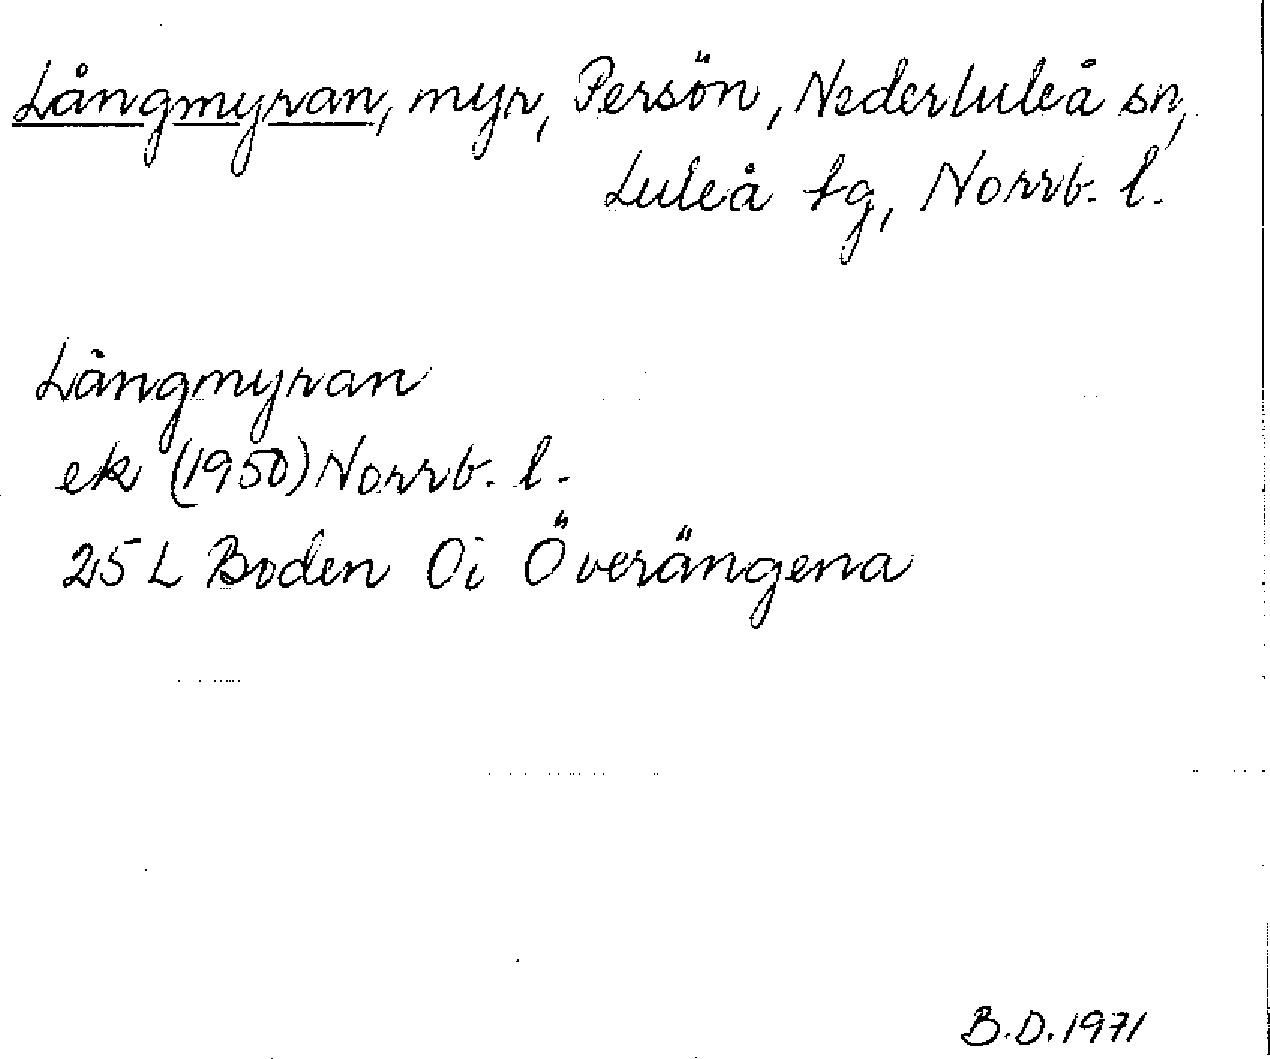 Långmyran, myr, Persön, Nederluleå sn,
Luleå tg, Norrb. l.
Långmyran
ek (1950) Norrb. l.
25 L Boden Oi Överängena
B.D. 1971